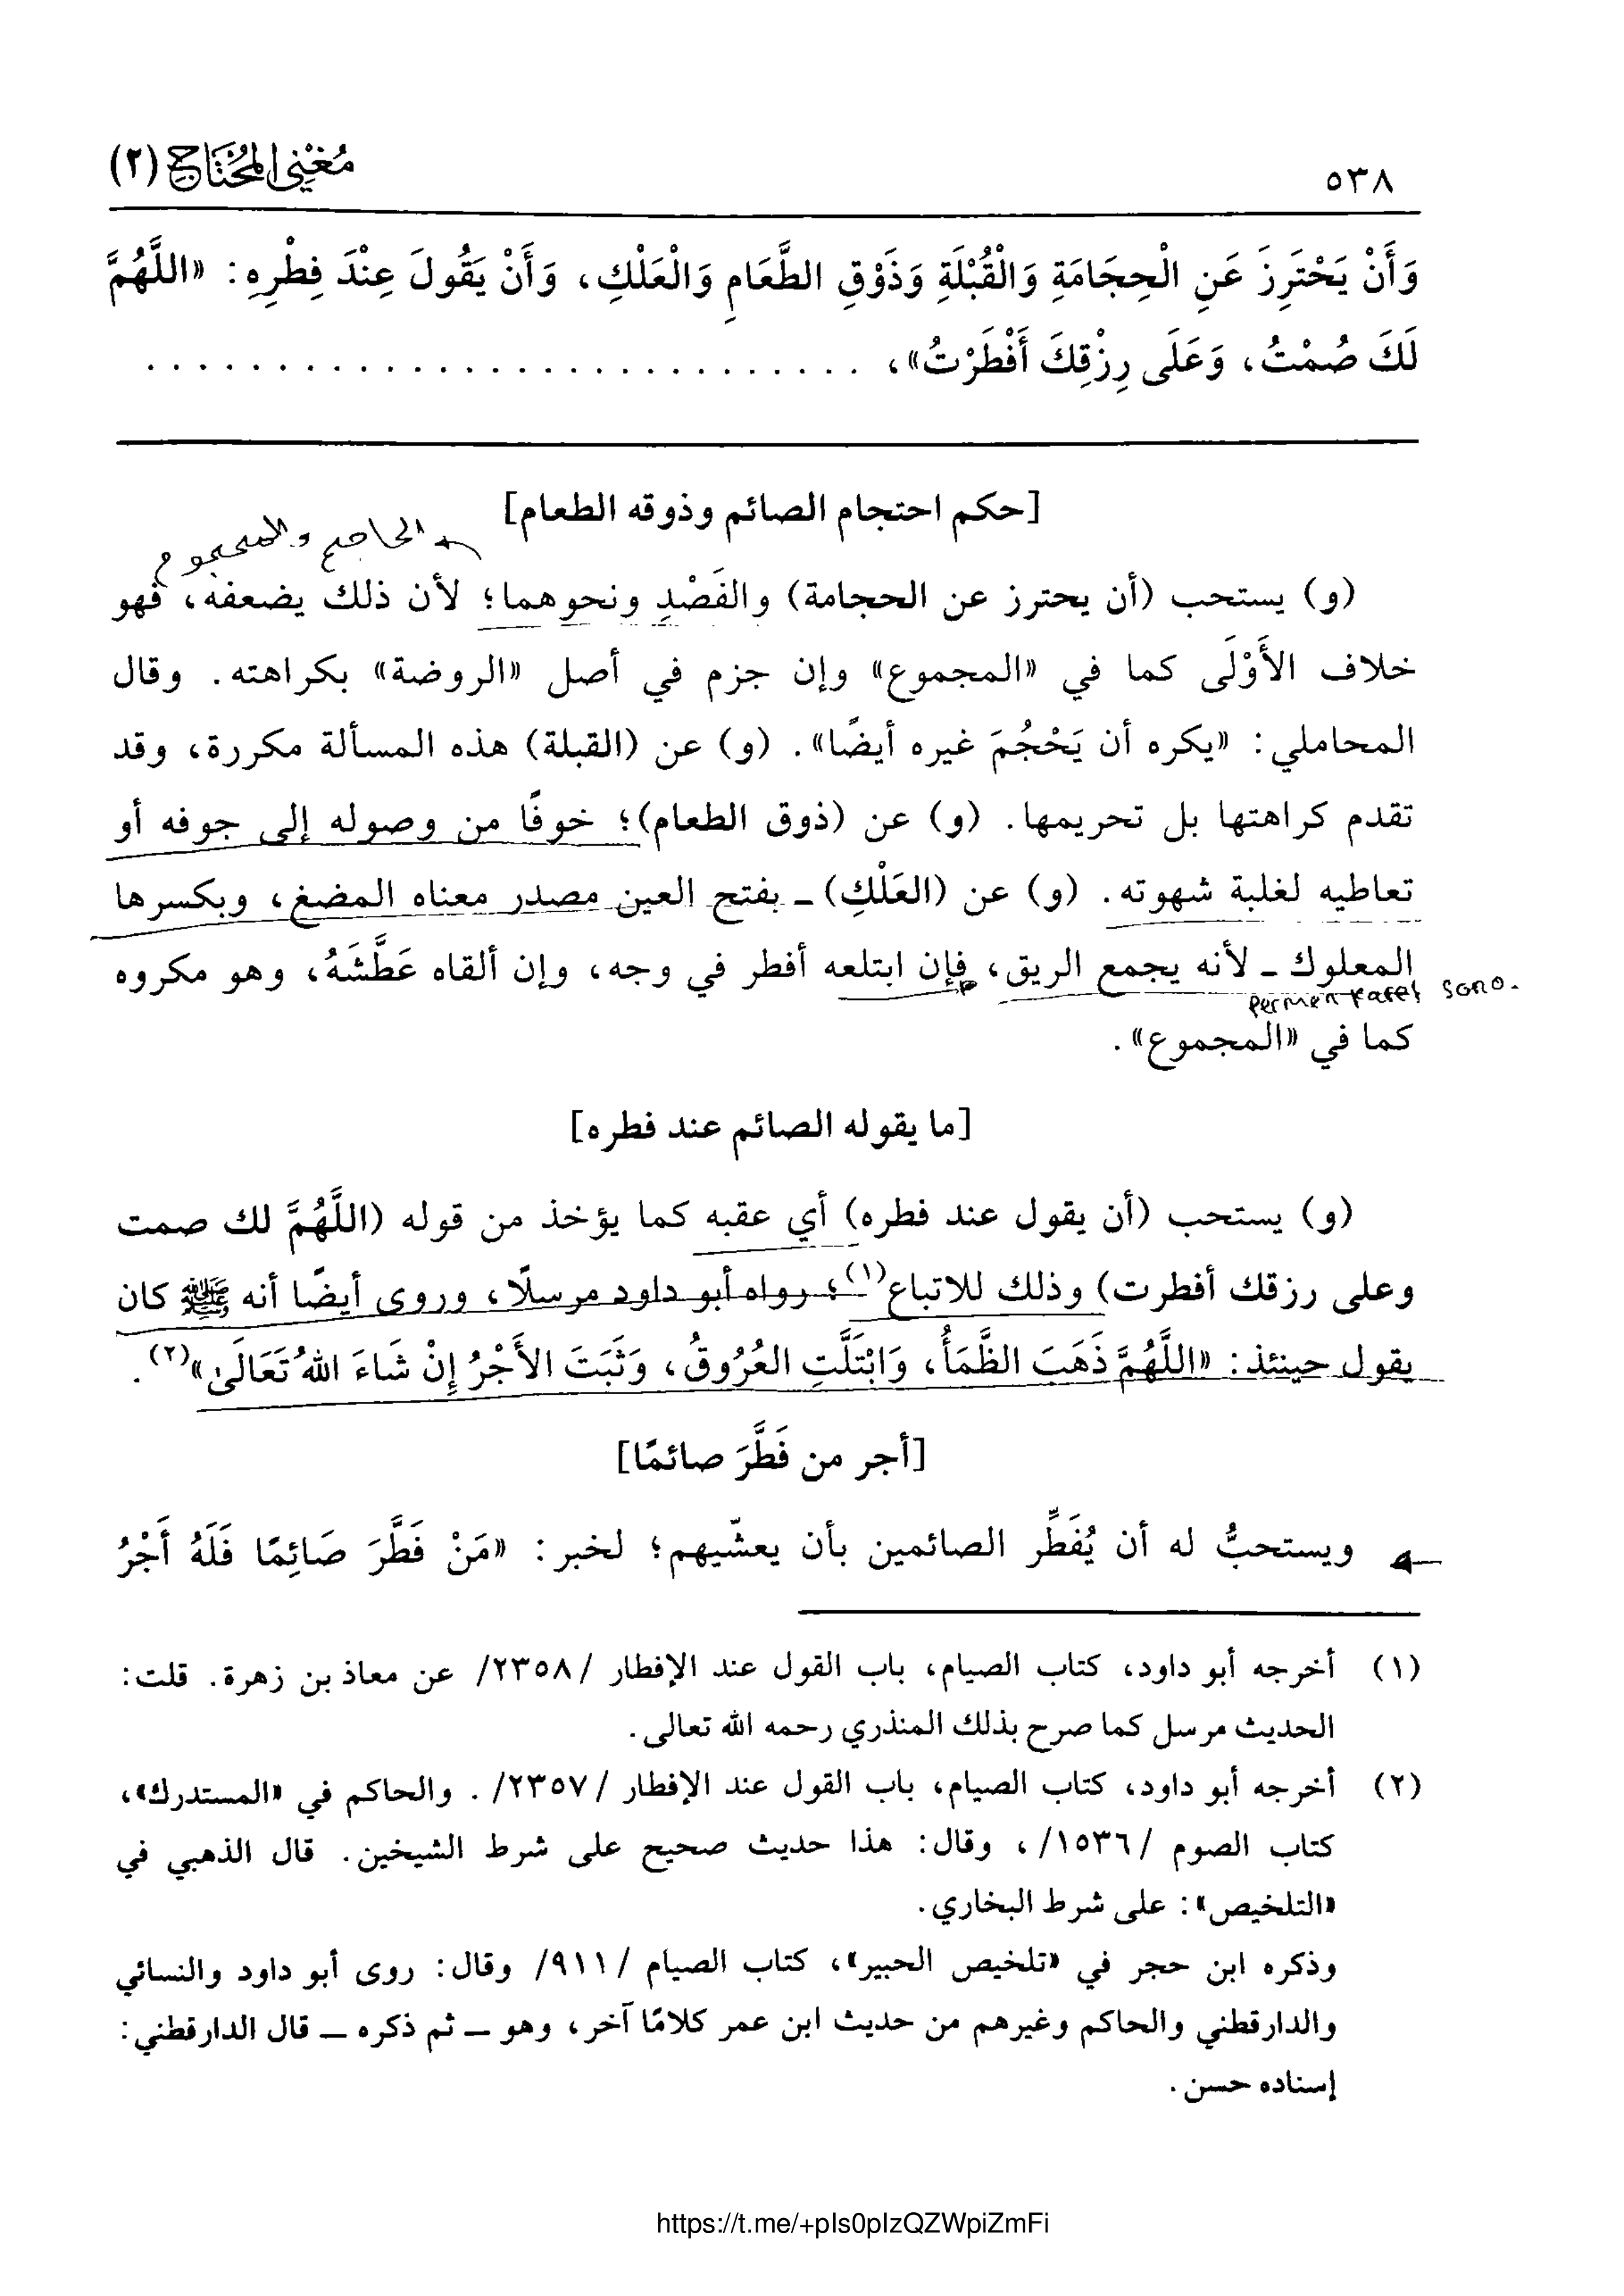 ٥٣٨
مُغْنِي المُحْتَاج (٢)
وَأَنْ يَحْتَرِزَ عَنِ الْحِجَامَةِ وَالْقُبْلَةِ وَذَوْقِ الطَّعَامِ وَالْعَلْكِ، وَأَنْ يَقُولَ عِنْدَ فِطْرِهِ: «اللَّهُمَّ
لَكَ صُمْتُ، وَعَلَى رِزْقِكَ أَفْطَرْتُ»، . . . . . . . . . . . . . . . . . . . . . . . . . . .
[حكم احتجام الصائم وذوقه الطعام]
الحاجم والمحجوم
(و) يستحب (أن يحترز عن الحجامة) والفَصْدِ ونحوهما؛ لأن ذلك يضعفه، فهو
خلاف الأَوْلَى كما في «المجموع» وإن جزم في أصل «الروضة» بكراهته. وقال
المحاملي: «يكره أن يَحْجُمَ غيره أيضًا». (و) عن (القبلة) هذه المسألة مكررة، وقد
تقدم كراهتها بل تحريمها. (و) عن (ذوق الطعام)؛ خوفًا من وصوله إلى جوفه أو
تعاطيه لغلبة شهوته. (و) عن (العَلْكِ) ـ بفتح العين مصدر معناه المضغ، وبكسرها
المعلوك ـ لأنه يجمع الريق، فإن ابتلعه أفطر في وجه، وإن ألقاه عَطَّشَهُ، وهو مكروه
Permen karet
كما في «المجموع».
[ما يقوله الصائم عند فطره]
(و) يستحب (أن يقول عند فطره) أي عقبه كما يؤخذ من قوله (اللَّهُمَّ لك صمت
وعلى رزقك أفطرت) وذلك للاتباع(١)؛ رواه أبو داود مرسلًا، وروى أيضًا أنه ﷺ كان
يقول حينئذ: «اللَّهُمَّ ذَهَبَ الظَّمَأُ، وَابْتَلَّتِ العُرُوقُ، وَثَبَتَ الأَجْرُ إِنْ شَاءَ اللهُ تَعَالَىٰ»(٢).
[أجر من فَطَّرَ صائمًا]
ويستحبُّ له أن يُفَطِّر الصائمين بأن يعشّيهم؛ لخبر: «مَنْ فَطَّرَ صَائِمًا فَلَهُ أَجْرُ
(١) أخرجه أبو داود، كتاب الصيام، باب القول عند الإفطار /٢٣٥٨/ عن معاذ بن زهرة. قلت:
الحديث مرسل كما صرح بذلك المنذري رحمه الله تعالى.
(٢) أخرجه أبو داود، كتاب الصيام، باب القول عند الإفطار /٢٣٥٧/. والحاكم في «المستدرك»،
كتاب الصوم /١٥٣٦/، وقال: هذا حديث صحيح على شرط الشيخين. قال الذهبي في
«التلخيص»: على شرط البخاري.
وذكره ابن حجر في «تلخيص الحبير»، كتاب الصيام /٩١١/ وقال: روى أبو داود والنسائي
والدارقطني والحاكم وغيرهم من حديث ابن عمر كلامًا آخر، وهو ـ ثم ذكره ـ قال الدارقطني:
إسناده حسن.
https://t.me/+pIs0pIzQZWpiZmFi